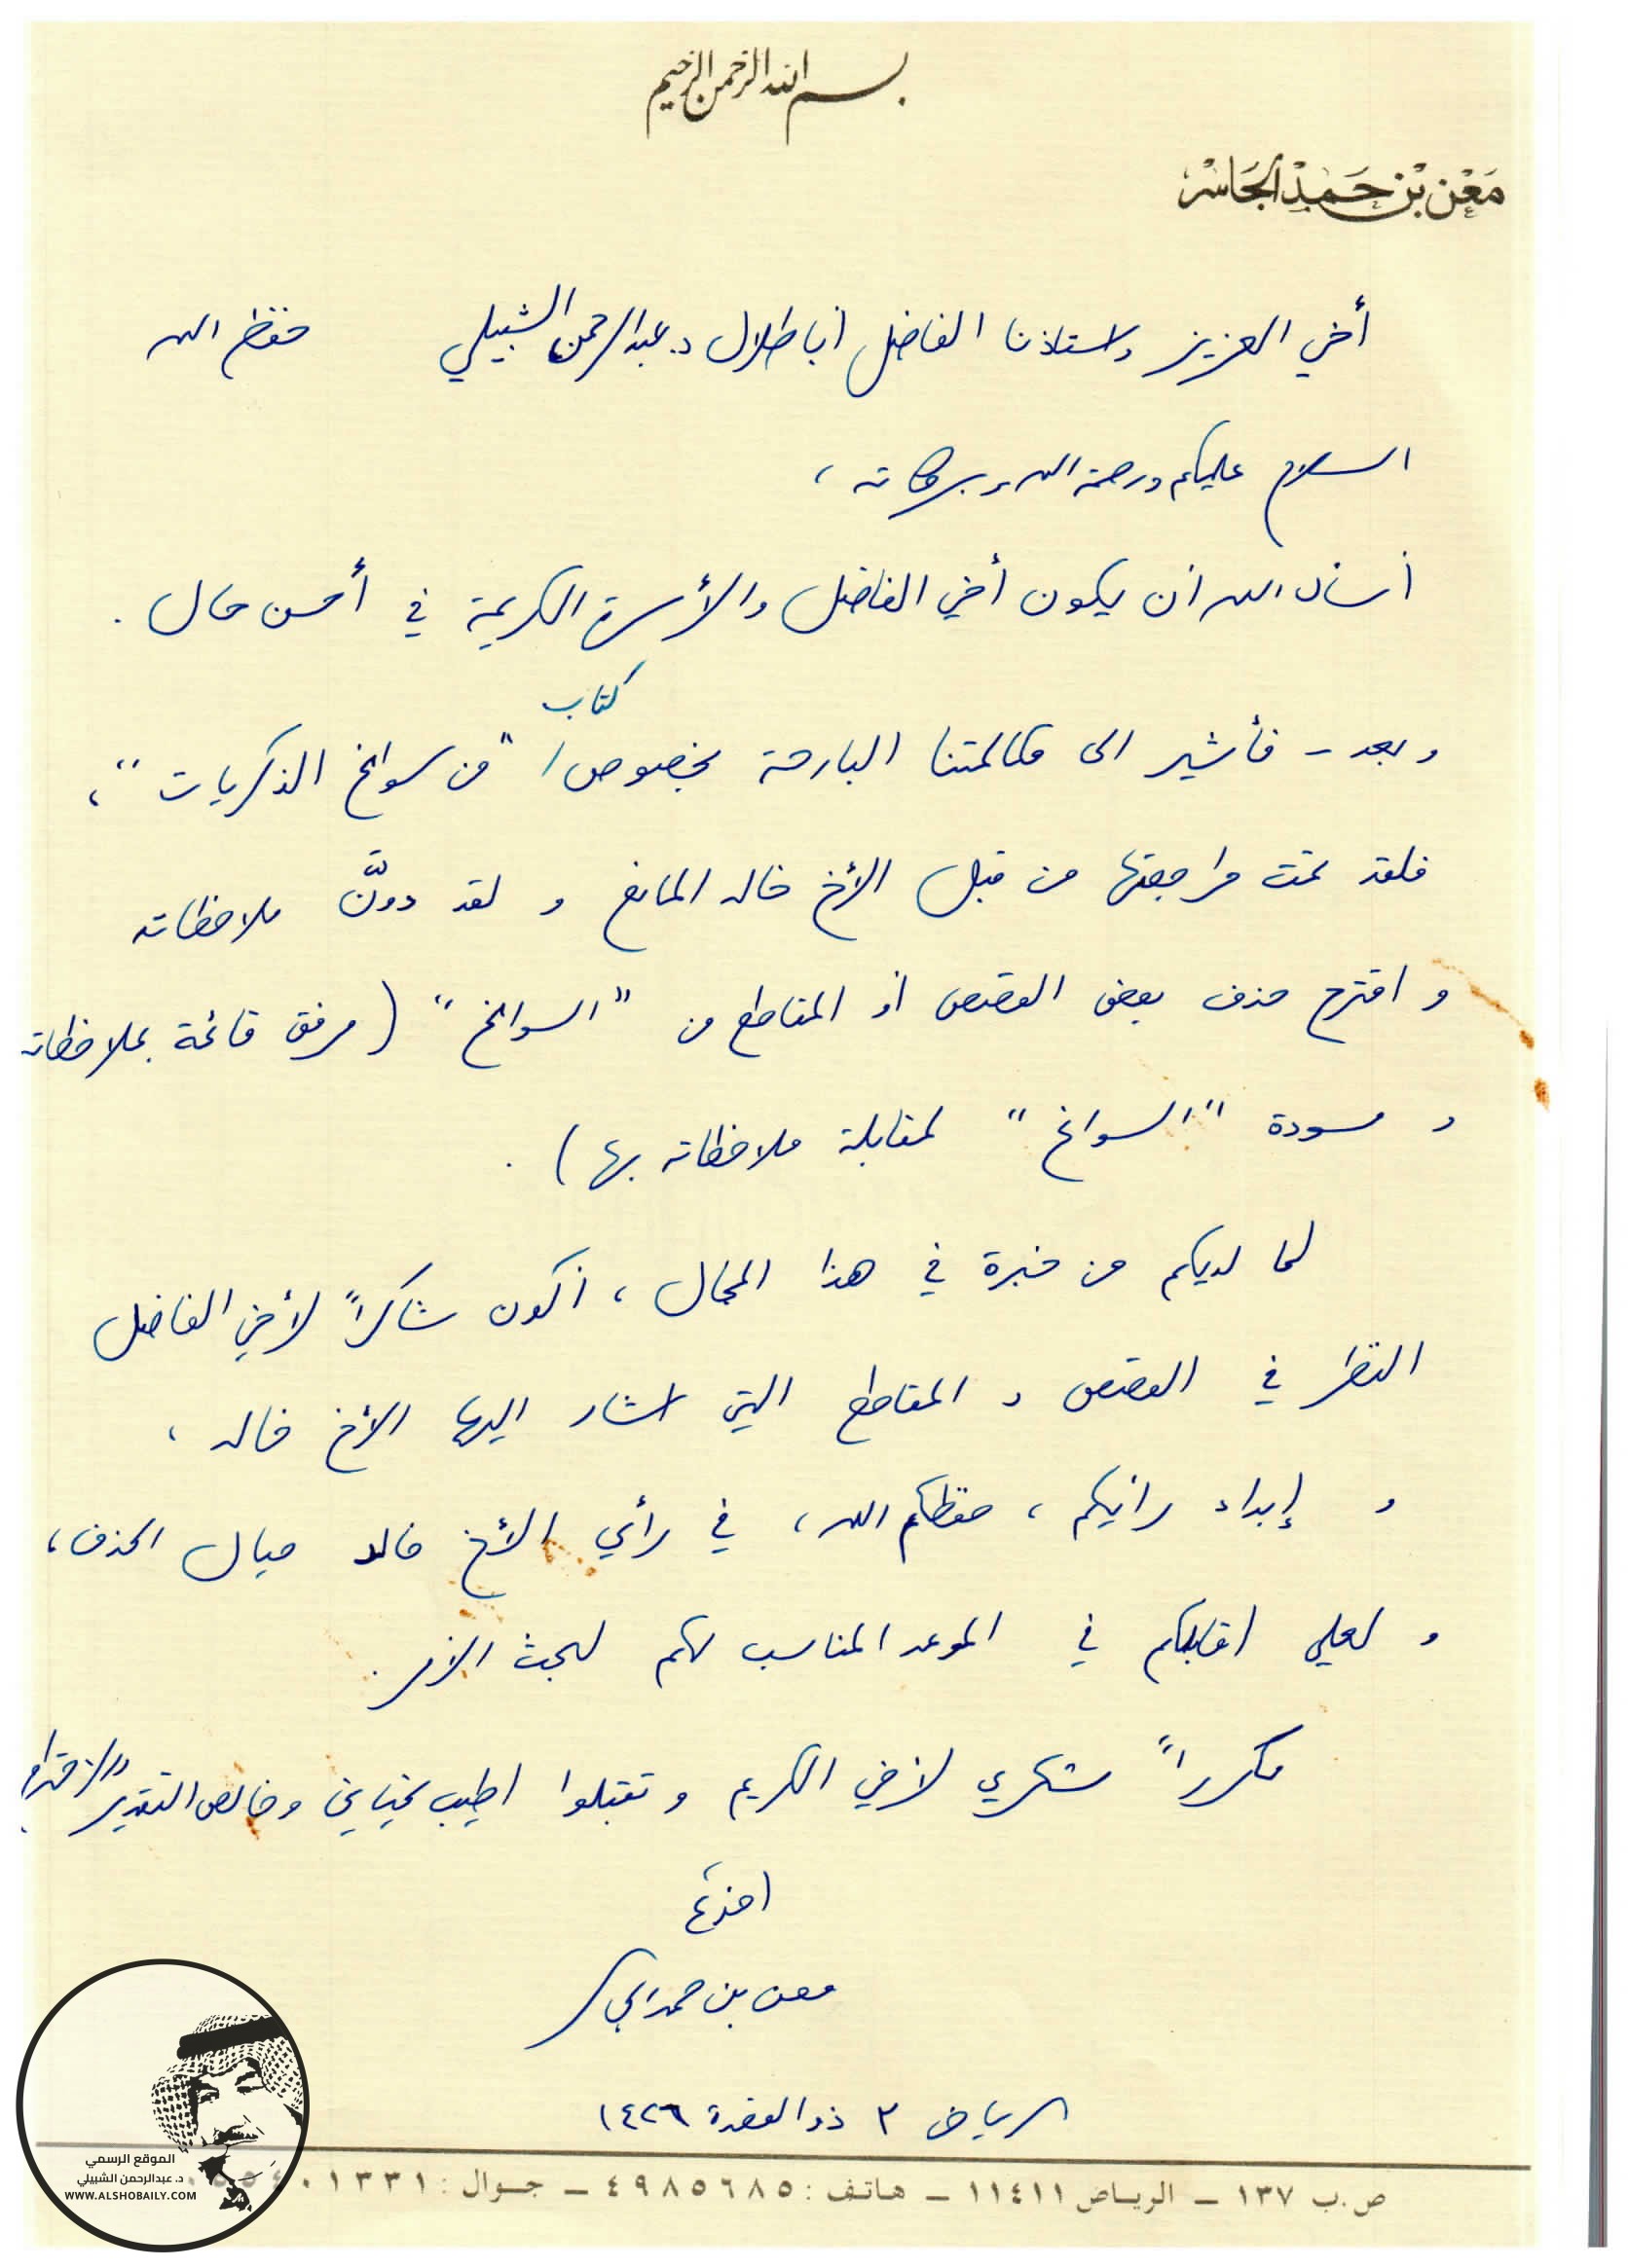 بسم الله الرحمن الرحيم
مَعْن بْن حَمَد الجَاسْر
أخي العزيز واستاذنا الفاضل أبا طلال د. عبدالرحمن الشبيلي حفظه الله
السلام عليكم ورحمة الله وبركاته ،
أسأل الله ان يكون أخي الفاضل والأسرة الكريمة في أحسن حال .
كتاب
وبعد - فأشير الى مكالمتنا البارحة بخصوص / "من سوانح الذكريات" ،
فلقد تمت مراجعتها من قبل الأخ خالد المانع و لقد دوَّن ملاحظاته
و اقترح حذف بعض القصص أو المقاطع من "السوانح" (مرفق قائمة بملاحظاته
و مسودة "السوانح" لمقابلة ملاحظاته بها) .
لما لديكم من خبرة في هذا المجال ، أكون شاكراً لأخي الفاضل
النظر في القصص و المقاطع التي اشار اليها الأخ خالد ،
و إبداء رأيكم ، حفظكم الله ، في رأي الأخ خالد حيال الحذف ،
و لعلي اقابلكم في الموعد المناسب لكم لبحث الأمر .
مكرراً شكري لأخي الكريم و تقبلوا اطيب تحياتي وخالص التقدير والاحترام ،
اخوكم
معن بن حمد الجاسر
الرياض ٢ ذو القعدة ١٤٢٦
ص.ب ١٣٧ – الرياض ١١٤١١ – هاتف : ٤٩٨٥٦٨٥ – جوال :
الموقع الرسمي
د. عبدالرحمن الشبيلي
WWW.ALSHOBAILY.COM